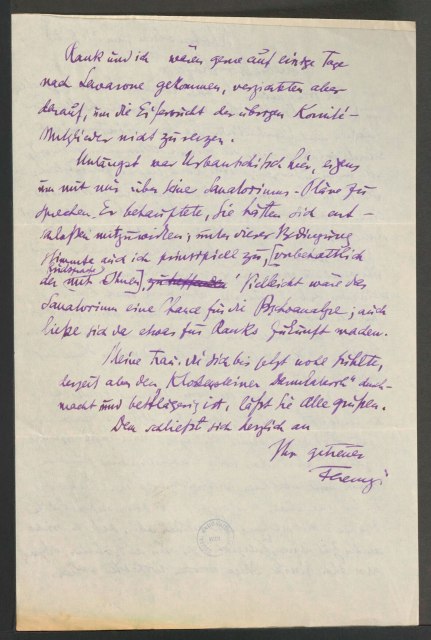 Rank und ich wären gerne auf einige Tage
nach Lavarone gekommen, verzichten aber
darauf, um die Eifersucht der übrigen Komité-
Mitglieder nicht zu reizen.
Unlängst war Urbantschitsch hier, eigens
um mit mir über seine Sanatoriums-Pläne zu
sprechen. Er behauptete, Sie hätten sich ent-
schloßen mitzuwirken; unter dieser Bedingung
stimmte auch ich prinzipiell zu, [vorbehaltlich
der Rücksprache mit Ihnen], zu treffenden! Vielleicht wäre das
Sanatorium eine Chance für die Psychoanalyse; auch
ließe sich da etwas für Ranks Zukunft machen.
Meine Frau, die sich bis jetzt wohl fühlte,
derzeit aber den Klostersteiner durch-
macht und bettlägerig ist, läßt Sie Alle grüßen.
Dem schließt sich herzlich an
Ihr getreuer
Ferenczi